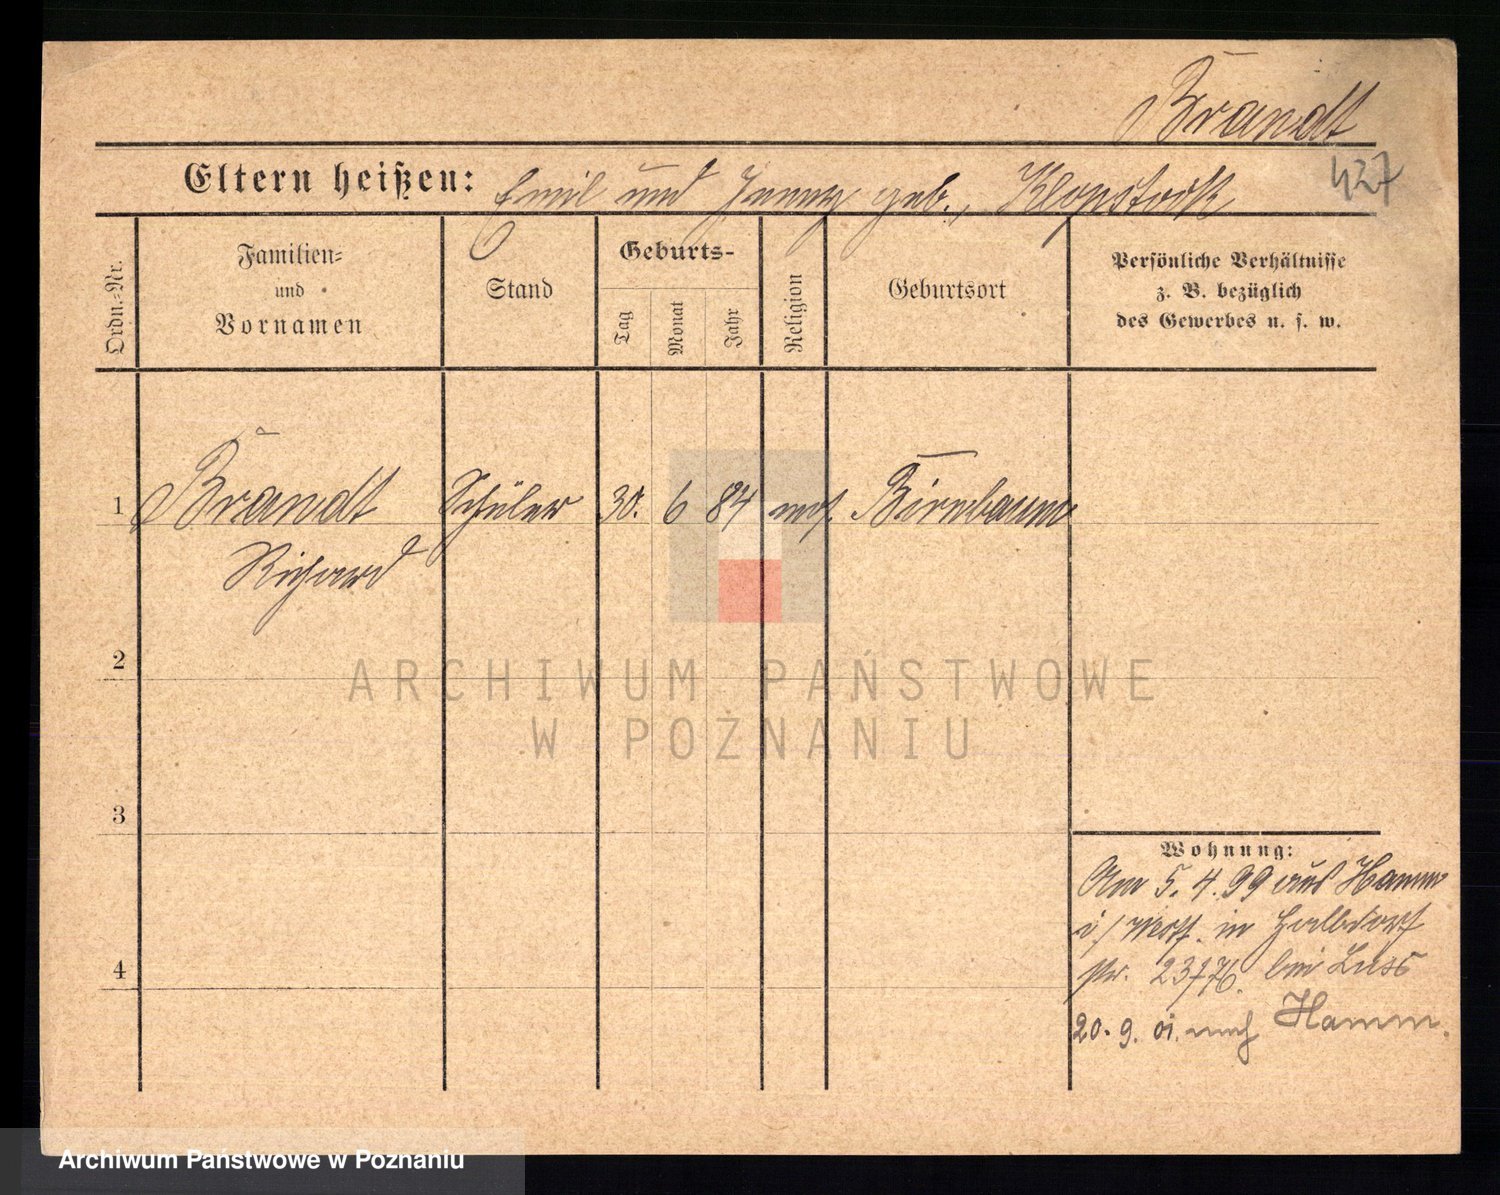 Brandt
427
Eltern heißen: Emil und Jenny geb. Klopstock
Ordn.-Nr.
Familien-
und
Vornamen
Stand
Geburts-
Tag
Monat
Jahr
Religion
Geburtsort
Persönliche Verhältnisse
z. B. bezüglich
des Gewerbes u. s. w.
1 Brandt Schüler 30. 6 84 mos. Birnbaum
Richard
2
3
4
ARCHIWUM PAŃSTWOWE
W POZNANIU
Wohnung:
Am 5.4.99 aus Hamm
i/Westf. in Halbdorf
str. bei
20.9.01. nach Hamm.
Archiwum Państwowe w Poznaniu